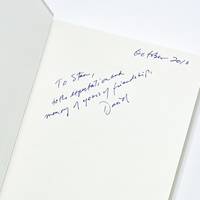 October 2010
To Stan,
to the expectation and
memory of years of friendship.
David